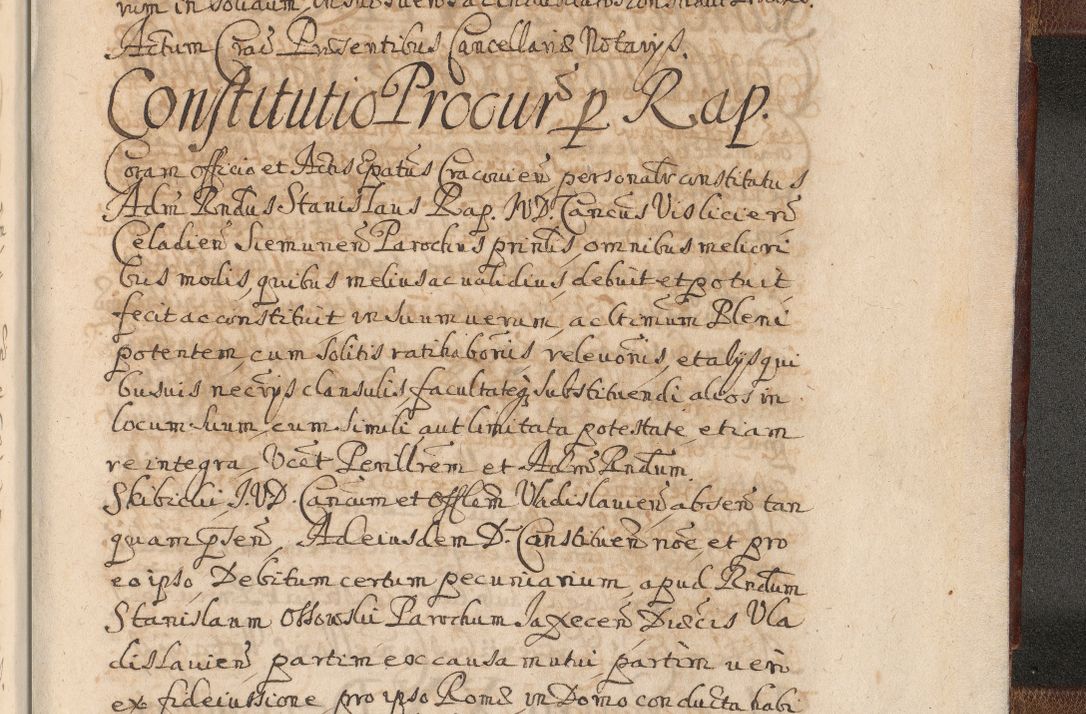 Actum Crac̄ Præsentibus Cancellariæ Notarijs.
Constitutio Procur̄ p. Rap.
Coram officio et Actis Ep̄atus Cracovien̄ personalr̄ constitutus
Adm̄ Rn̄dus Stanislaus Rap. IVD. Can̄cus Vislicien̄
Celadien̄ Siemunen̄ Parochus prin̄tis, omnibus meliori
bus modis, quibus melius ac validius, debuit et potuit
fecit ac constituit in suum verum, ac ltimum Pleni
potentem, cum solitis ratihabon̄is, relevon̄is, et alijs qui
busuis necr̄ijs clausulis, facultateq̨ substituendi alios in
locum suum, cum simili, aut limitata potestate, etiam
re integra, Vcēt Perillrēm et Adm̄ Rn̄dum
Skibicki I.V.D. Can̄cum et Offlem̄ Vladislavien̄ absen̄ tan
quam p̄sen̄, Ad eiusdem D. Constituen̄ noe̅, et pro
eo ipso, Debitum certum pecuniarium, apud Rn̄dum
Stanislaum Ossowski Parochum Japecen̄ Diæc̄is Vla
dislavien̄ partim ex causa mutui partim vero
ex fideiussione pro ipso Romæ in Domo conducta habi